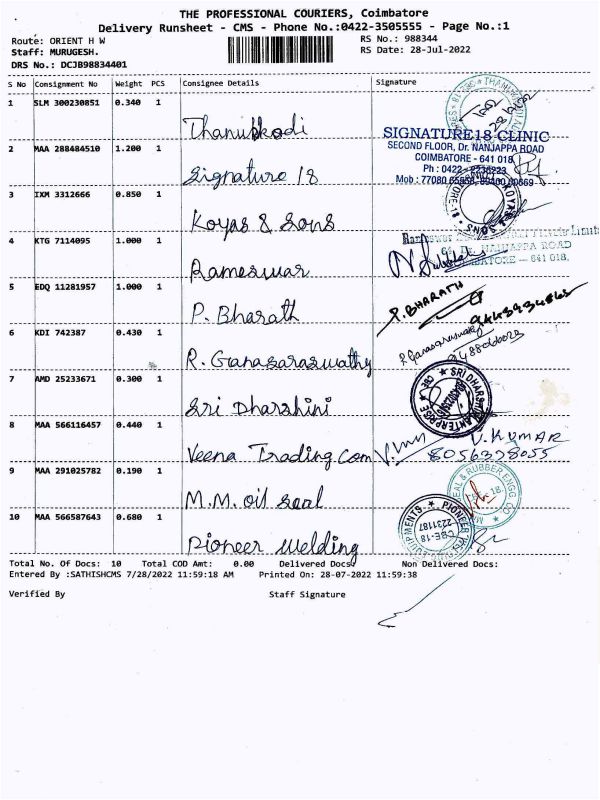 THE PROFESSIONAL COURIERS, Coimbatore
Delivery Runsheet - CMS - Phone No.:0422-3505555 - Page No.:1
Route: ORIENT H W
RS No.: 988344
Staff: MURUGESH.
RS Date: 28-Jul-2022
DRS No.: DCJB98834401
S No Consignment No Weight PCS Consignee Details Signature
1 SLM 300230851 0.340 1
Thanukkodi
SIGNATURE 18 CLINIC
2 MAA 288484510 1.200 1
SECOND FLOOR, Dr. NANJAPPA ROAD
COIMBATORE - 641 018
Signature 18
3 IXM 3312666 0.850 1
Koyas & Sons
4 KTG 7114095 1.000 1
NANJAPPA ROAD
641 018.
Rameswar
5 EDQ 11281957 1.000 1
P. Bharath
P. BHARATH
6 KDI 742387 0.430 1
R. Ganasaraswathy
7 AMD 25233671 0.300 1
Sri Dharshini
8 MAA 566116457 0.440 1
Veena Trading Com
V. KUMAR
8056378055
9 MAA 291025782 0.190 1
M.M. oil seal
10 MAA 566587643 0.680 1
Pioneer Welding
Total No. Of Docs: 10 Total COD Amt: 0.00 Delivered Docs: Non Delivered Docs:
Entered By :SATHISHCMS 7/28/2022 11:59:18 AM Printed On: 28-07-2022 11:59:38
Verified By Staff Signature